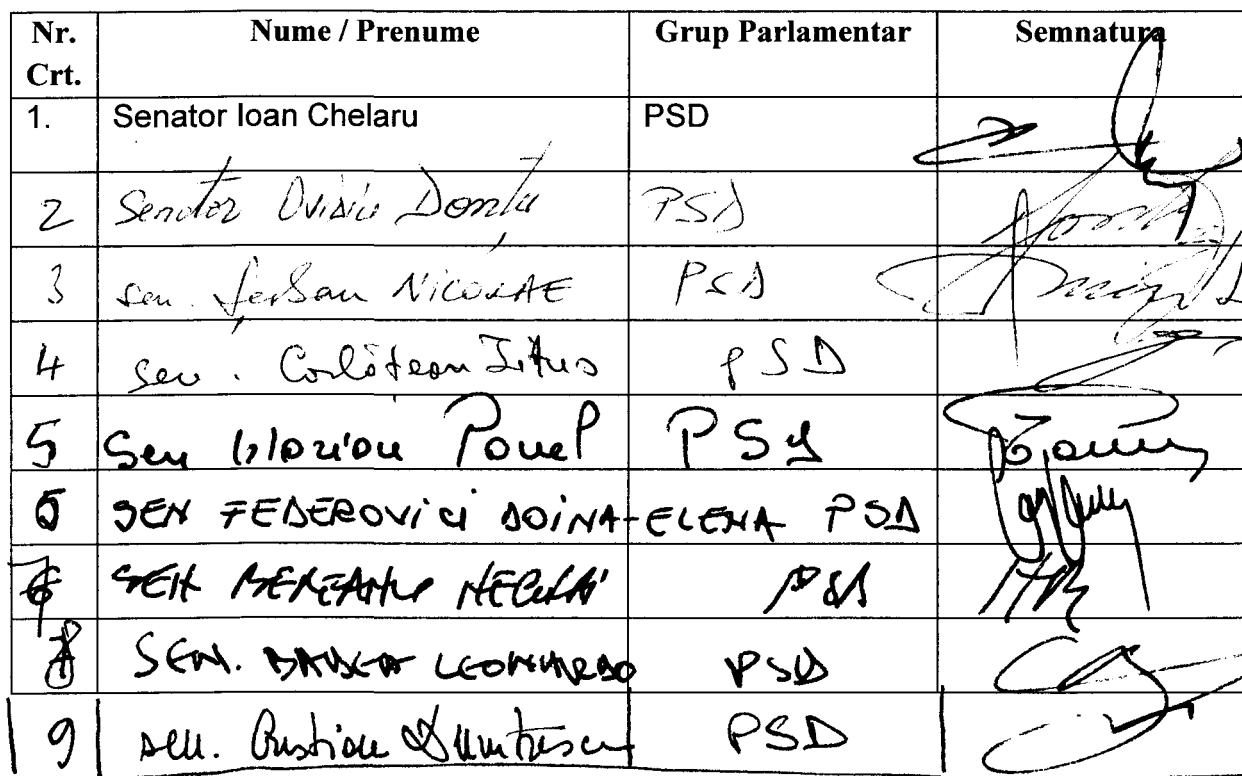 Nr. Crt. Nume / Prenume Grup Parlamentar Semnatura
1. Senator Ioan Chelaru PSD
2 Senator Ovidiu Donțu PSD
3 sen. Șerban NICOLAE PSD
4 sen. Corlățean Titus PSD
5 Sen Pavel PSD
6 SEN FEDEROVICI DOINA-ELENA PSD
7 SEN PSD
8 SEN. BADEA LEONARDO PSD
9 sen. Cristian Dumitrescu PSD